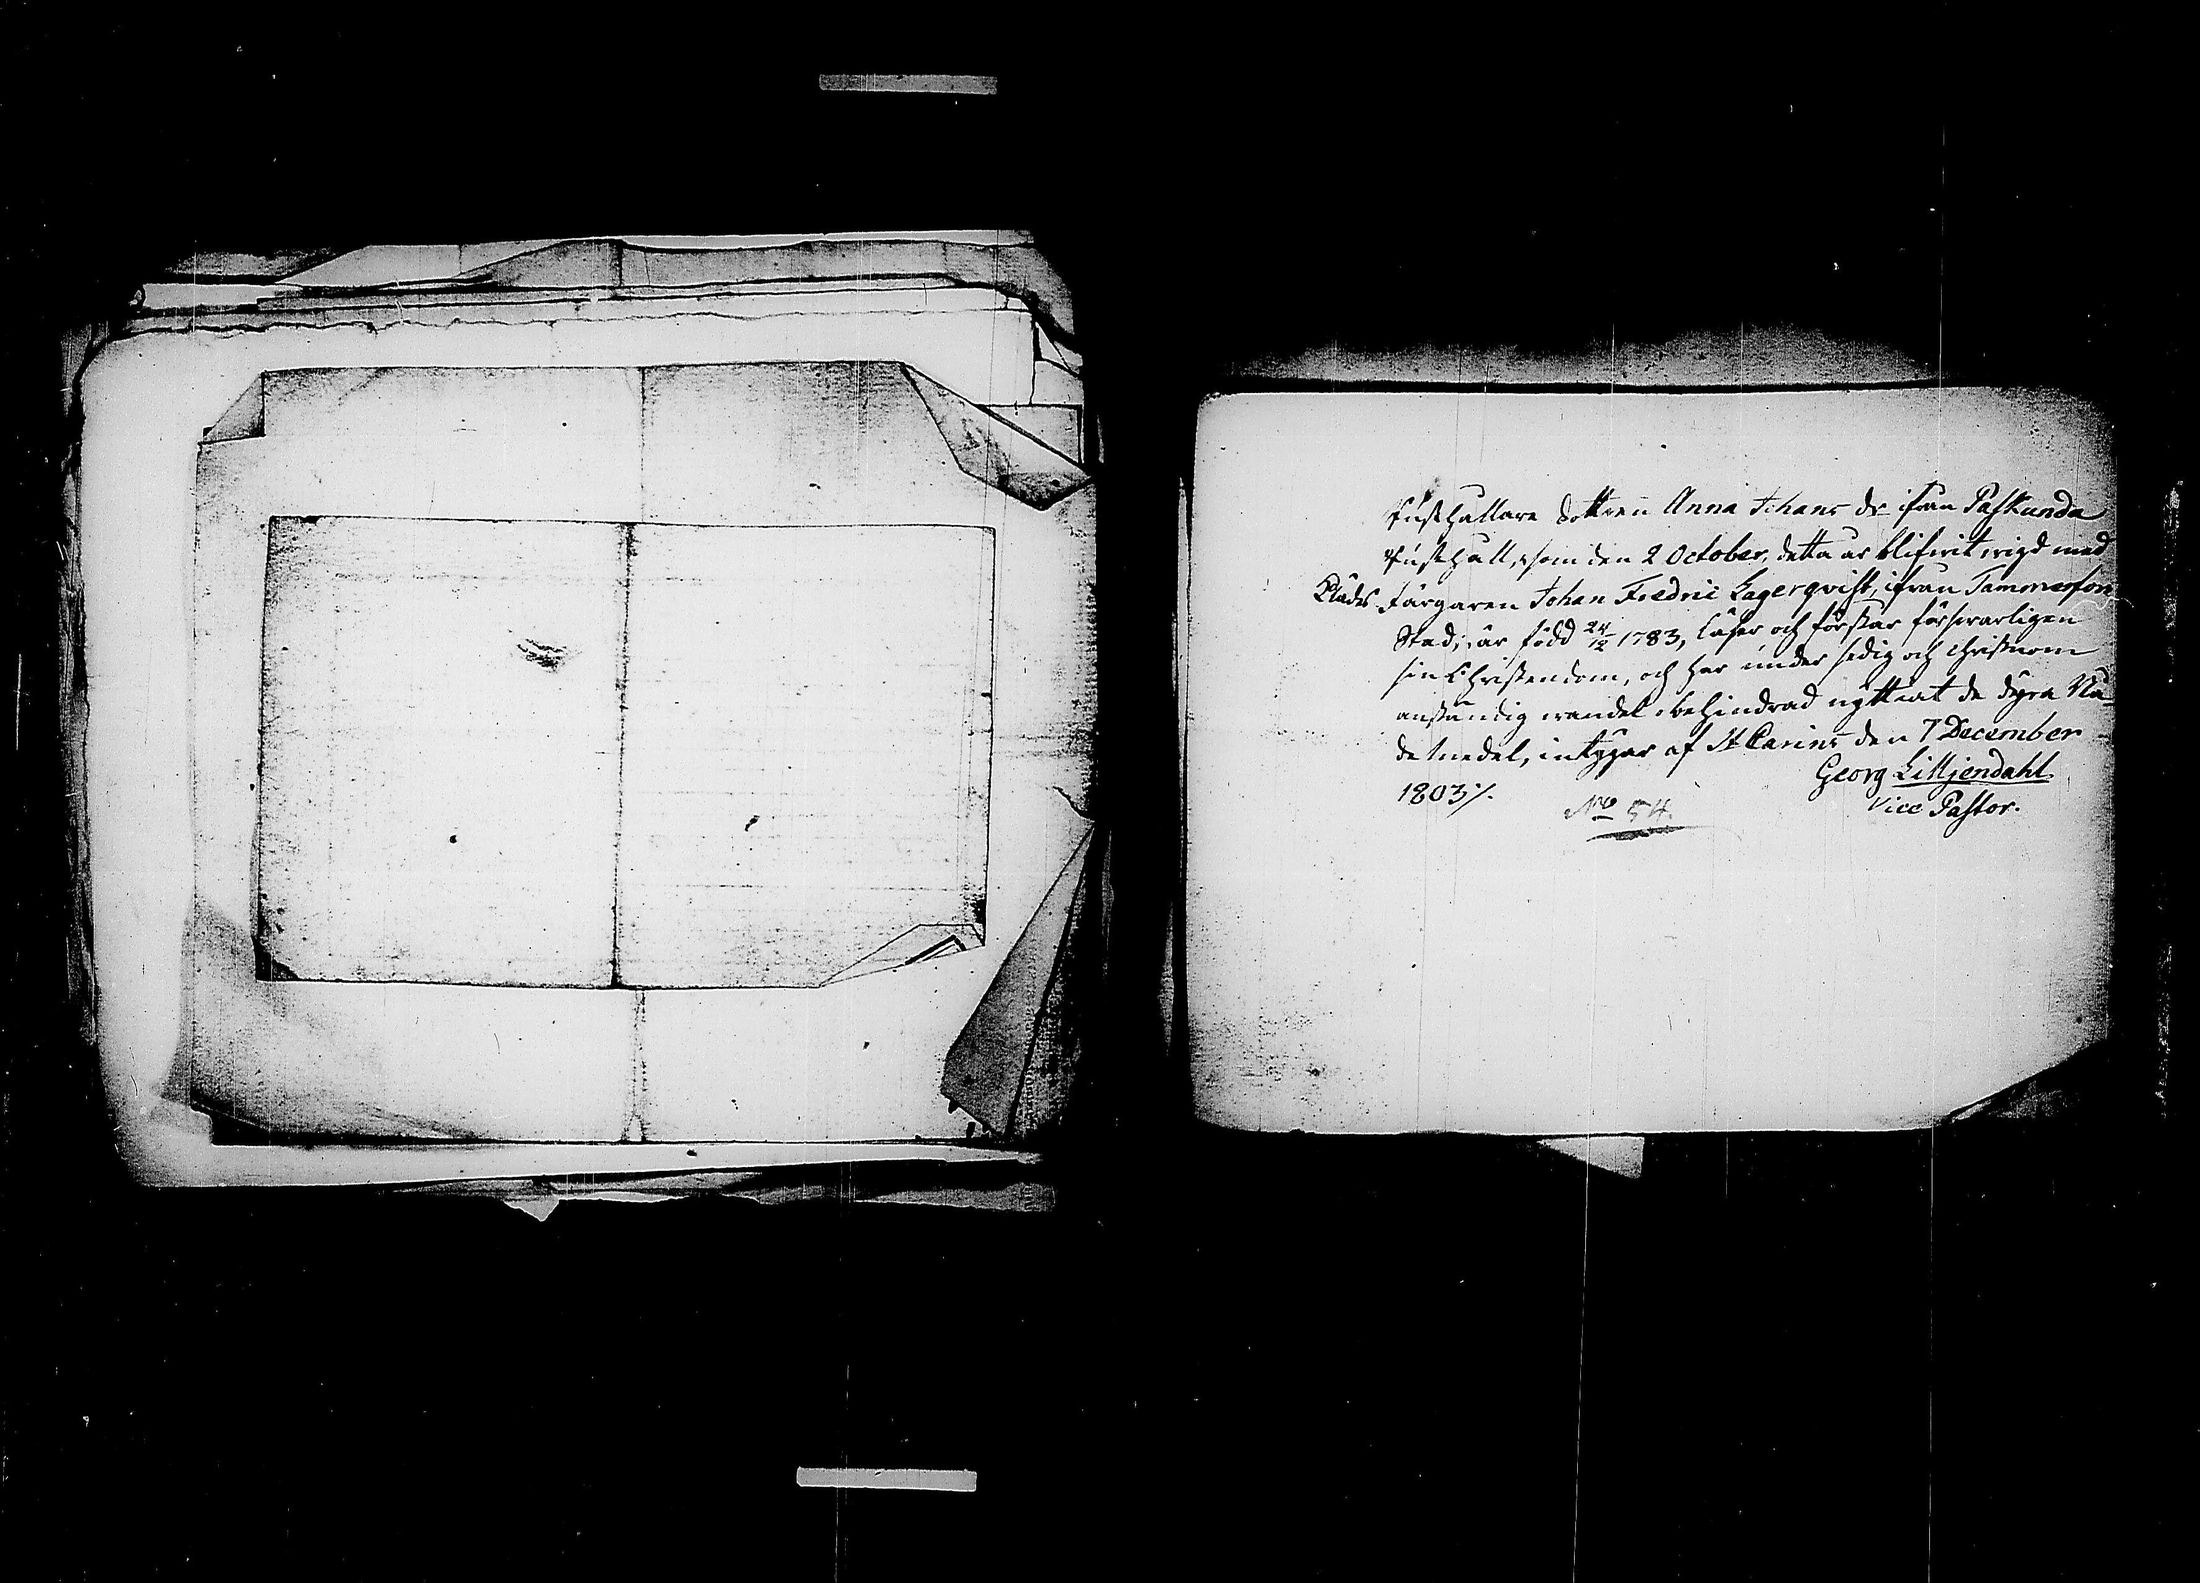 Rusthållare dottren Anna Johans dr ifrån Paskunda
Rusthåll, som den 2 October, detta år blifwit wigd med
Klädes Färgaren Johan Fredric Lagerqvist, ifrån Tammerfors
Stad; är född 24/12 1783, läser och förstår förswarligen
sin Christendom, och har under sedig och christnom
anständig wandel obehindrad nyttiat de dyra Nå-
demedel, intygar af St Carins den 7 December
1803 ⁒
Georg Lilljendahl
Vice Pastor.
No 54.